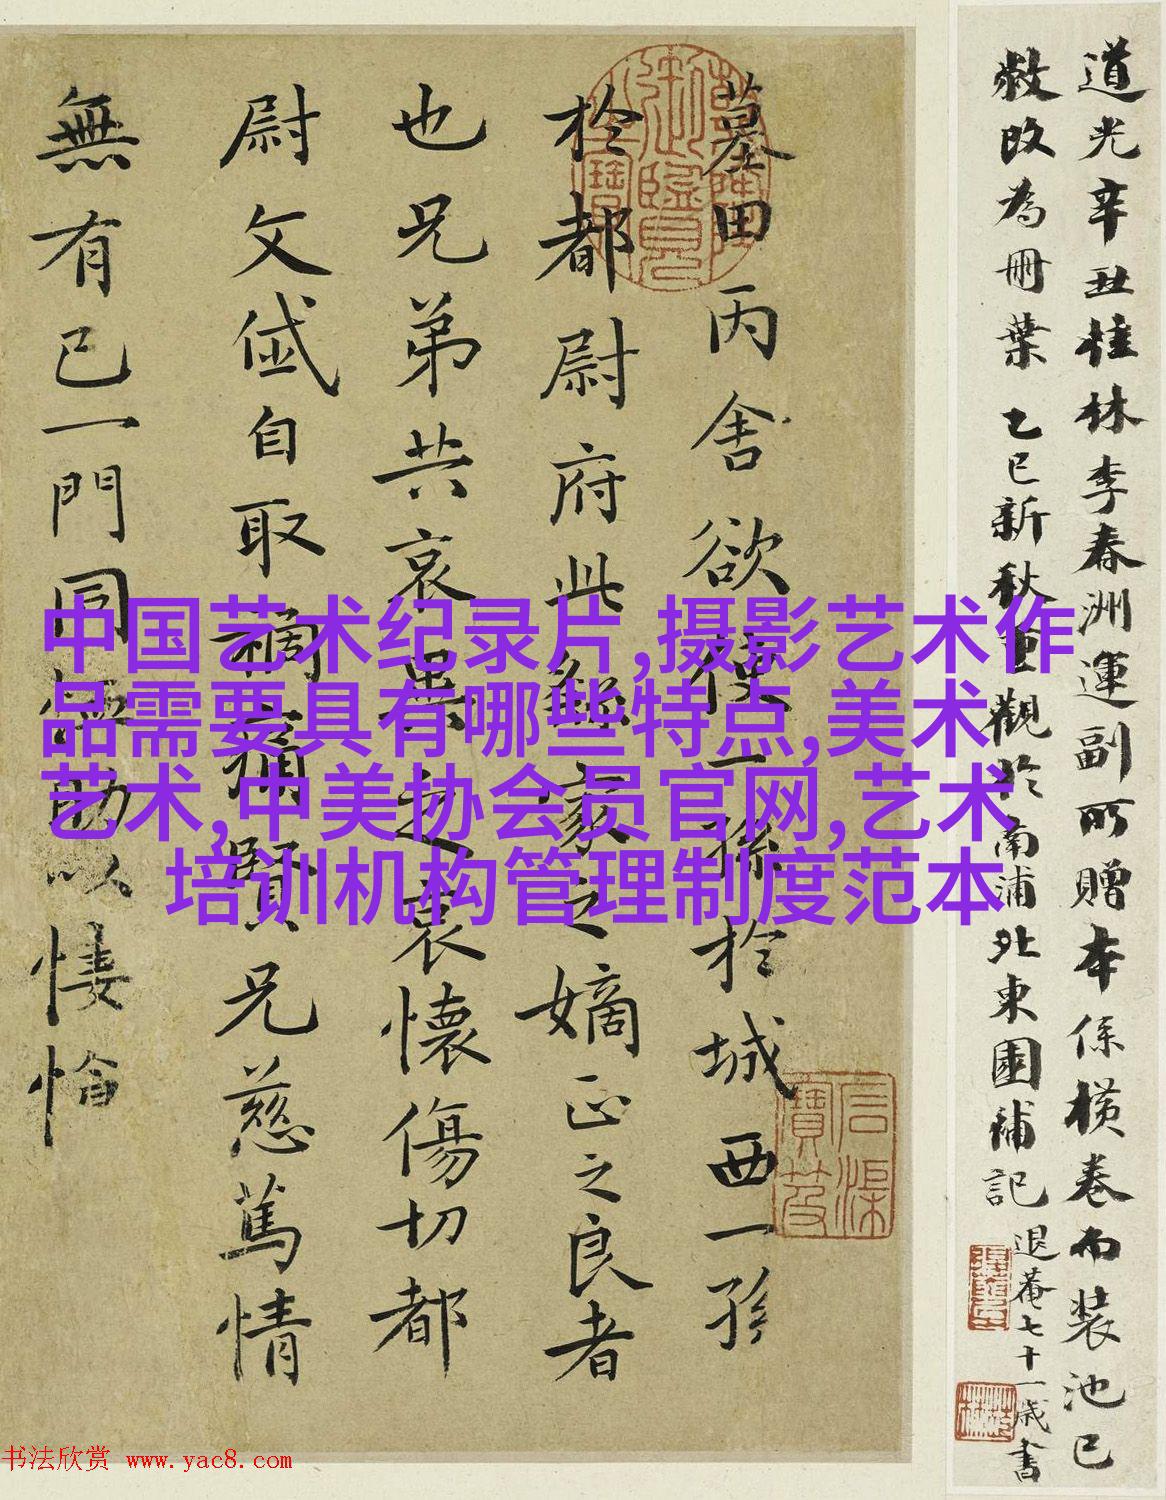 道光辛丑桂林李春洲運副所贈本係横卷而装池已
敝改為冊葉 乙巳新秋重觀於南浦北東園補記
退菴七十一歲書
墓田丙舍欲使一孫於城西一孫
於都尉府此繇家之嫡正之良者
也兄弟共哀異之哀懷傷切都
尉文岱自取禍痛賢兄慈篤情
無有已一門同恤助以悽愴
中国艺术纪录片,摄影艺术作
品需要具有哪些特点,美术
艺术,中美协会员官网,艺术
培训机构管理制度范本
书法欣赏 www.yac8.com